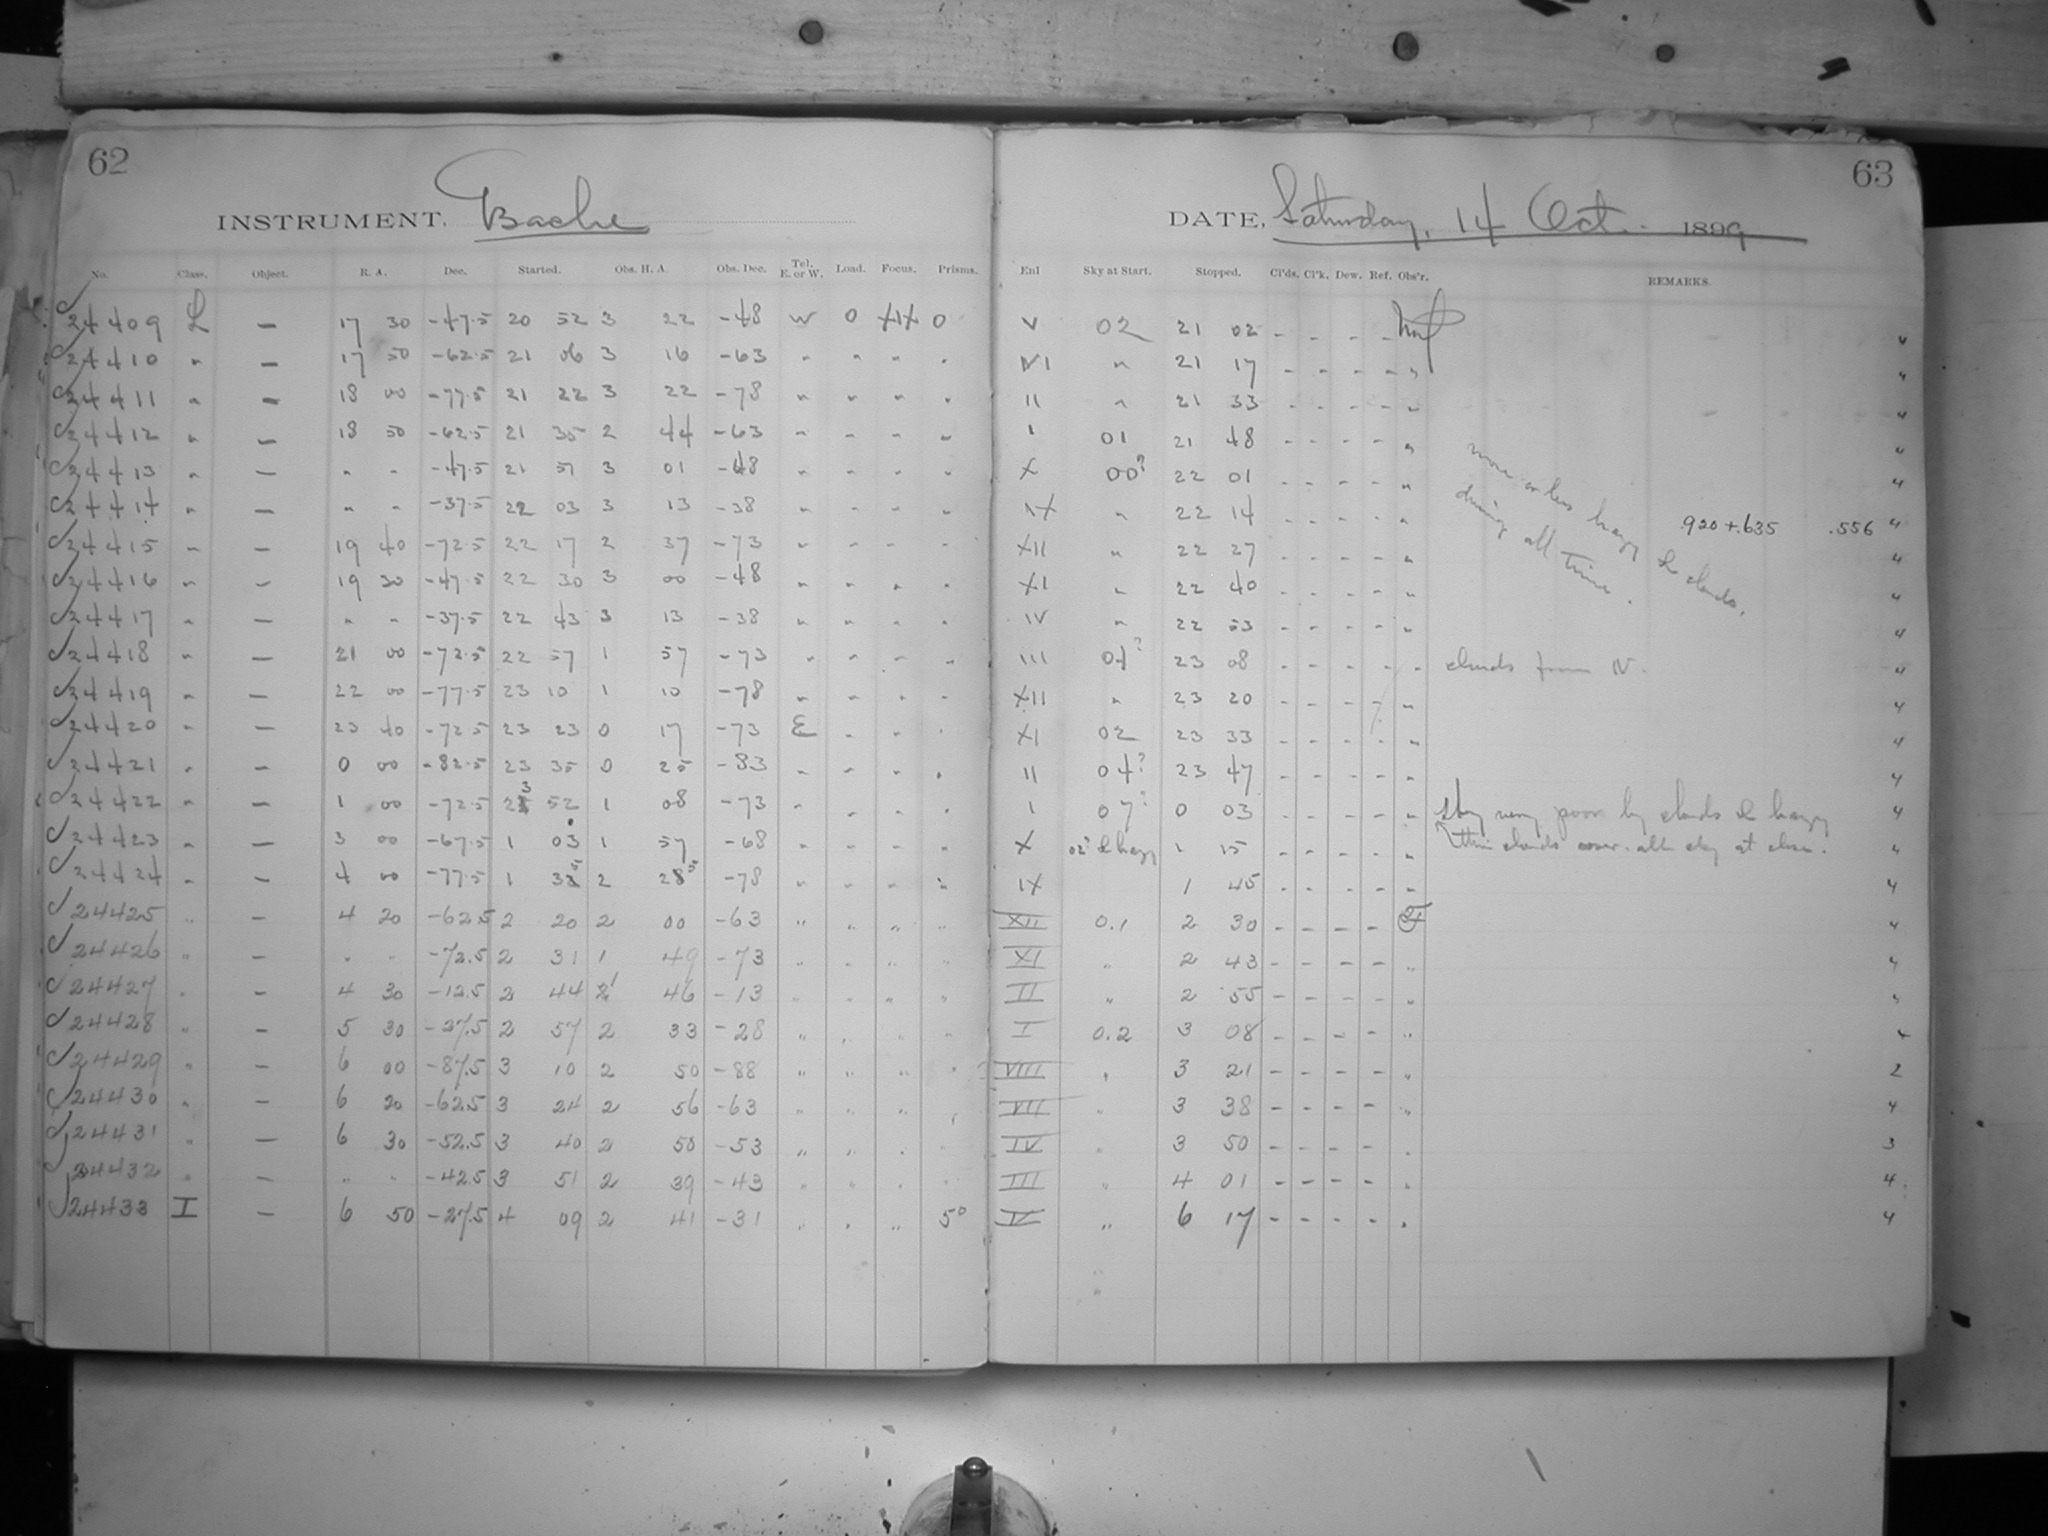 62
INSTRUMENT, Bache
No. Class. Object. R. A. Dec. Started. Obs. H. A. Obs. Dec. Tel. E. or W. Load. Focus. Prisms.
24409 L — 17 30 -47.5 20 52 3 22 -48 W 0 XIX 0
24410 " — 17 50 -62.5 21 06 3 16 -63 " " " "
24411 " — 18 00 -77.5 21 22 3 22 -78 " " " "
24412 " — 18 50 -62.5 21 35 2 44 -63 " " " "
24413 " — " " -47.5 21 51 3 01 -48 " " " "
24414 " — " " -37.5 22 03 3 13 -38 " " " "
24415 " — 19 40 -72.5 22 17 2 37 -73 " " " "
24416 " — 19 30 -47.5 22 30 3 00 -48 " " " "
24417 " — " " -37.5 22 43 3 13 -38 " " " "
24418 " — 21 00 -72.5 22 57 1 57 -73 " " " "
24419 " — 22 00 -77.5 23 10 1 10 -78 " " " "
24420 " — 23 40 -72.5 23 23 0 17 -73 E " " "
24421 " — 0 00 -82.5 23 35 0 25 -83 " " " "
24422 " — 1 00 -72.5 23 52 1 08 -73 " " " "
24423 " — 3 00 -67.5 1 03 1 57 -68 " " " "
24424 " — 4 00 -77.5 1 35 2 25 -78 " " " "
24425 " — 4 20 -62.5 2 20 2 00 -63 " " " "
24426 " — " " -72.5 2 31 1 49 -73 " " " "
24427 " — 4 30 -12.5 2 44 2 46 -13 " " " "
24428 " — 5 30 -27.5 2 57 2 33 -28 " " " "
24429 " — 6 00 -87.5 3 10 2 50 -88 " " " "
24430 " — 6 20 -62.5 3 24 2 56 -63 " " " "
24431 " — 6 30 -52.5 3 40 2 50 -53 " " " "
24432 " — " " -42.5 3 51 2 39 -43 " " " "
24433 I — 6 50 -27.5 4 09 2 41 -31 " " " 5°
63
DATE, Saturday, 14 Oct. 1899
Enl Sky at Start. Stopped. Cl'ds. Cl'k. Dew. Ref. Obs'r. REMARKS.
V 02 21 02 - - - - "
VI " 21 17 - - - - " "
II " 21 33 - - - - " "
I 01 21 48 - - - - " "
X 00? 22 01 - - - - " "
IX " 22 14 - - - - " .920+.635 .556 "
XII " 22 27 - - - - " "
XI " 22 40 - - - - " "
IV " 22 53 - - - - " "
more or less hazy & clouds,
during all time.
III 04? 23 08 - - - - " clouds from N. "
XII " 23 20 - - - - " "
XI 02 23 33 - - - - " "
II 04? 23 47 - - - - " "
I 07? 0 03 - - - - " Sky very poor by clouds & hazy "
X 02? & hazy 1 15 - - - - " thin clouds cover all sky at close. "
IX 1 45 - - - - " "
XII 0.1 2 30 - - - - 4
XI " 2 43 - - - - " 4
II " 2 55 - - - - "
I 0.2 3 08 - - - - "
VIII " 3 21 - - - - " 2
VII " 3 38 - - - - " 4
IV " 3 50 - - - - " 3
III " 4 01 - - - - " 4
V " 6 17 - - - - " 4